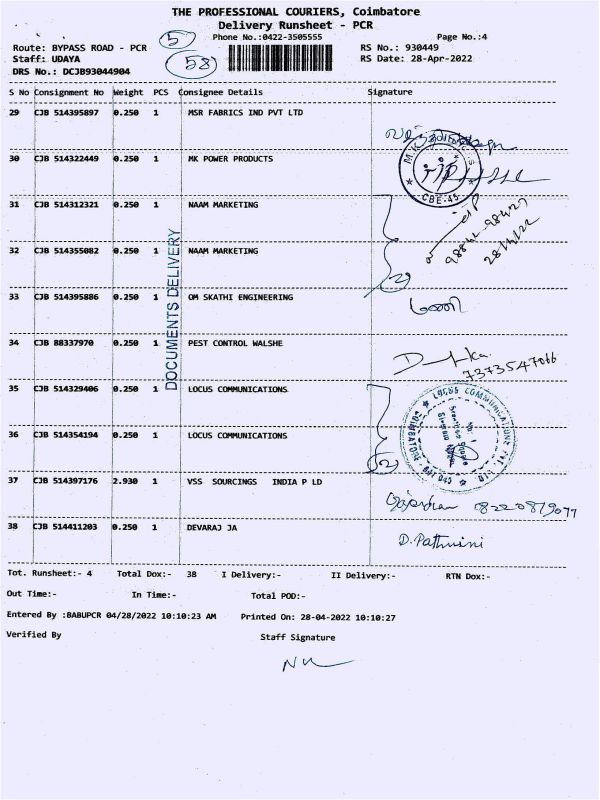 THE PROFESSIONAL COURIERS, Coimbatore
Delivery Runsheet - PCR
5
Phone No.:0422-3505555
Page No.:4
Route: BYPASS ROAD - PCR
RS No.: 930449
Staff: UDAYA
58
RS Date: 28-Apr-2022
DRS No.: DCJB93044904
S No Consignment No Weight PCS Consignee Details Signature
29 CJB 514395897 0.250 1 MSR FABRICS IND PVT LTD
30 CJB 514322449 0.250 1 MK POWER PRODUCTS
CBE-45
31 CJB 514312321 0.250 1 NAAM MARKETING
98842-98427
28/4/22
32 CJB 514355082 0.250 1 NAAM MARKETING
2
DOCUMENTS DELIVERY
33 CJB 514395886 0.250 1 OM SKATHI ENGINEERING
மணி
34 CJB 88337970 0.250 1 PEST CONTROL WALSHE
7373547066
35 CJB 514329406 0.250 1 LOCUS COMMUNICATIONS
LOCUS COMMUNICATIONS
36 CJB 514354194 0.250 1 LOCUS COMMUNICATIONS
2
37 CJB 514397176 2.930 1 VSS SOURCINGS INDIA P LD
08220879077
38 CJB 514411203 0.250 1 DEVARAJ JA
D. Pathmini
Tot. Runsheet:- 4 Total Dox:- 38 I Delivery:- II Delivery:- RTN Dox:-
Out Time:- In Time:- Total POD:-
Entered By :BABUPCR 04/28/2022 10:10:23 AM Printed On: 28-04-2022 10:10:27
Verified By Staff Signature